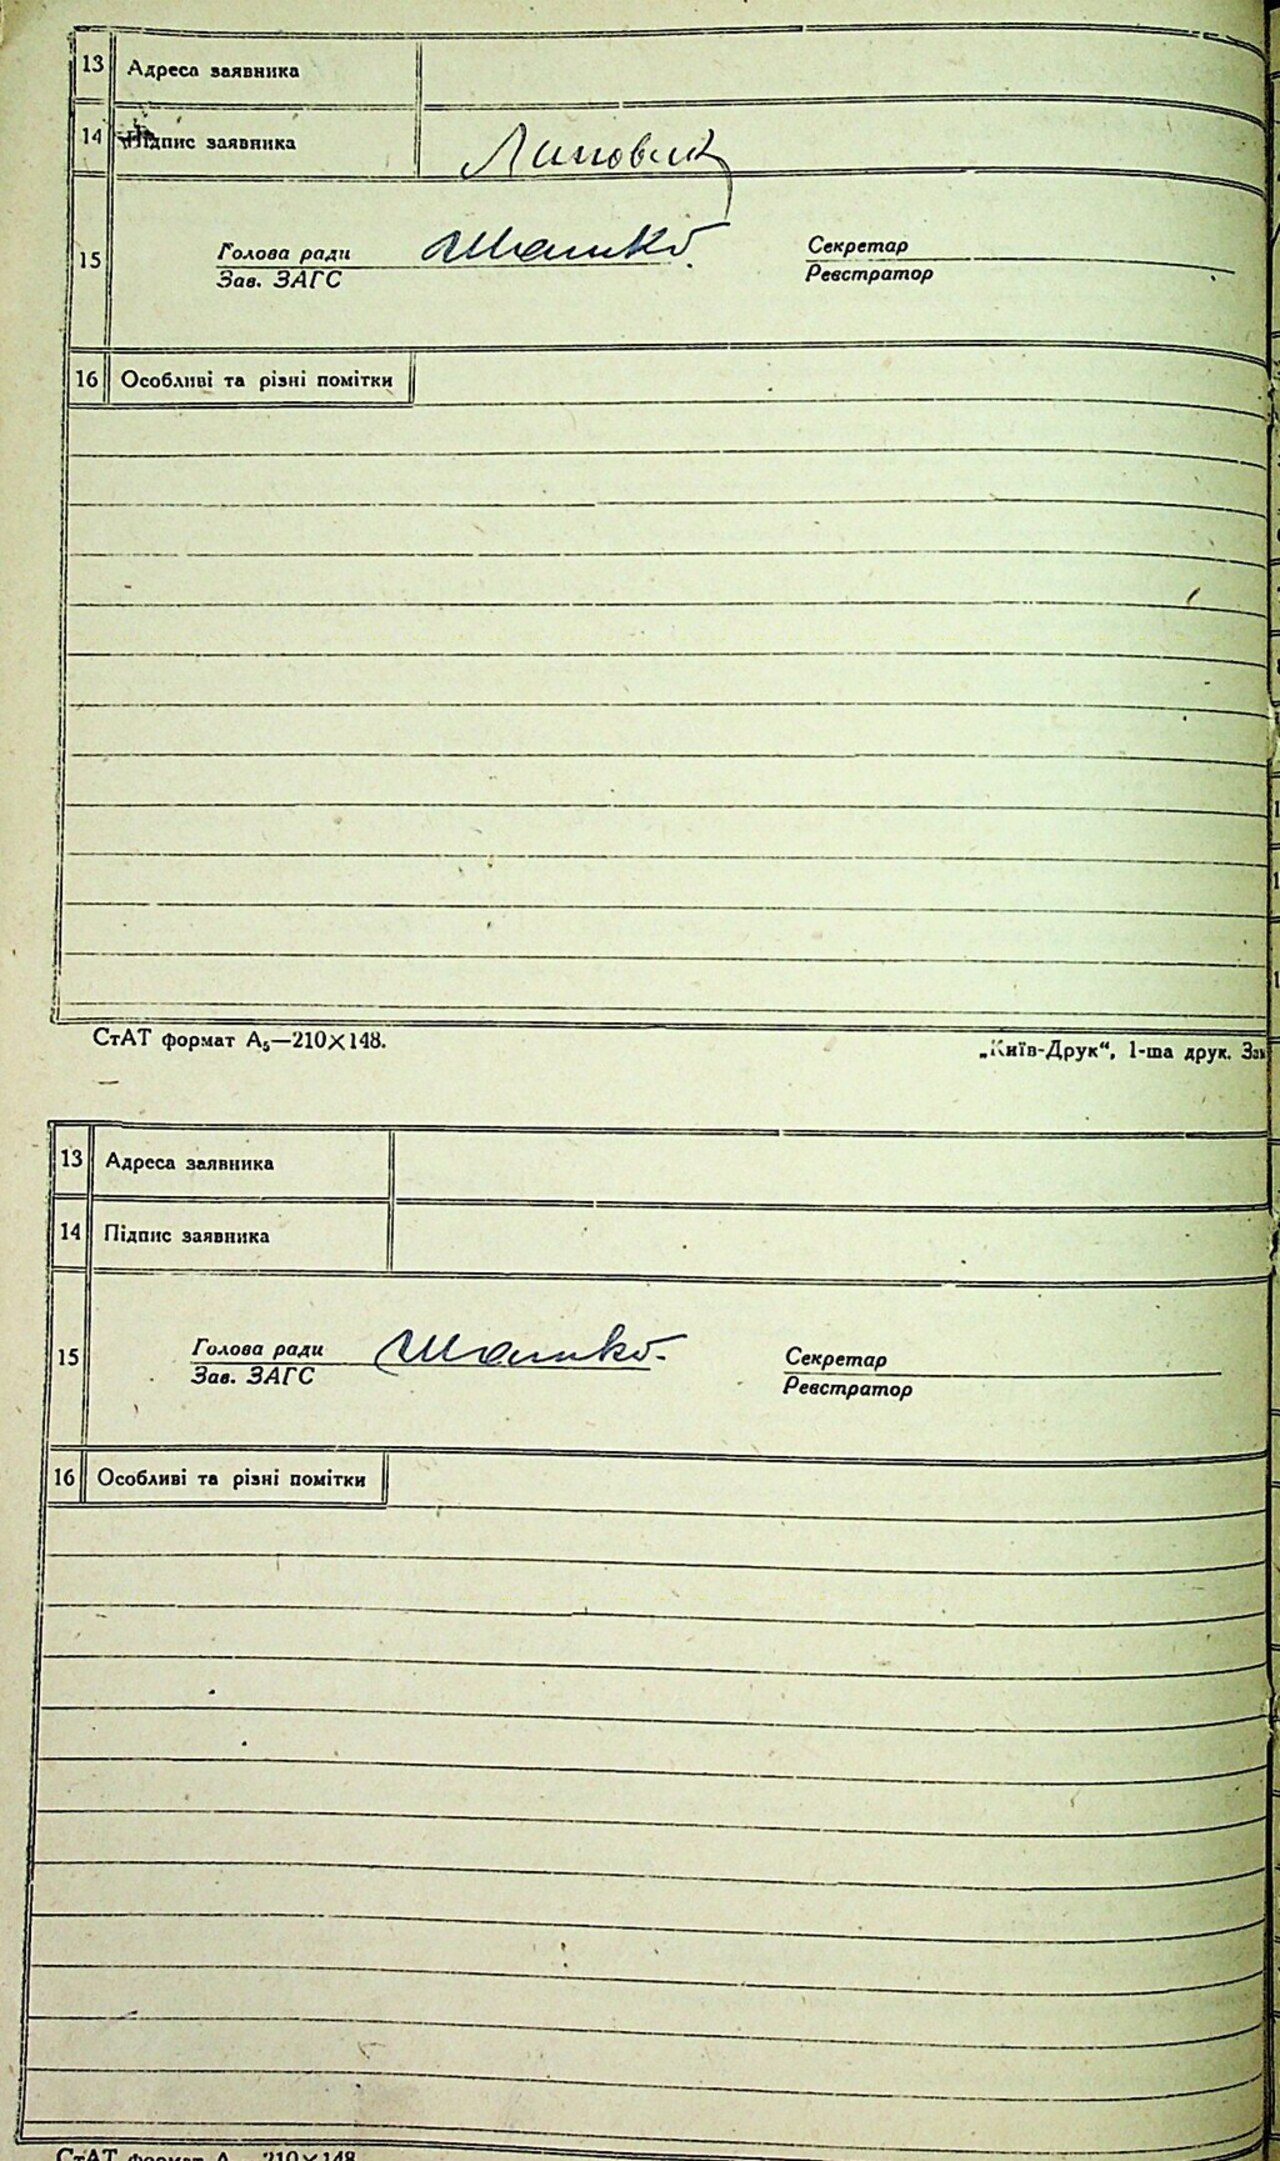 13 Адреса заявника
14 Підпис заявника
Голова ради
Секретар
15
Зав. ЗАГС
Реєстратор
16 Особливі та різні помітки
СтАТ формат А₅—210×148.
„Київ-Друк“, 1-ша друк. Зам
13 Адреса заявника
14 Підпис заявника
Голова ради
Секретар
15
Зав. ЗАГС
Реєстратор
16 Особливі та різні помітки
СтАТ формат А 210×148